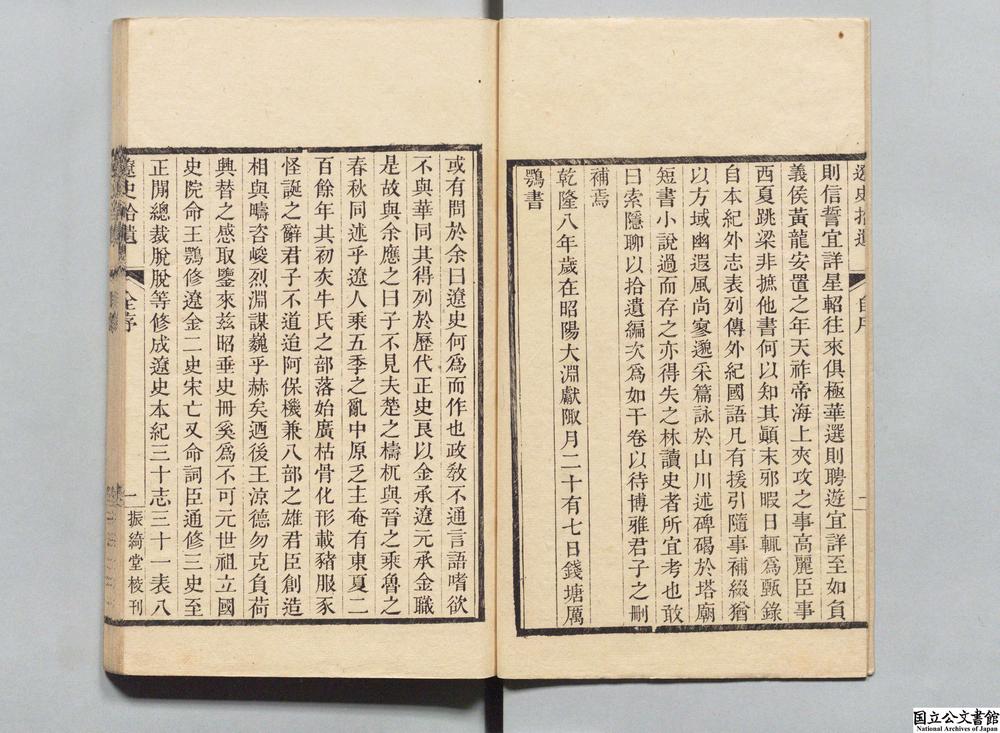 遼史拾遺 自序 二
則信誓宜詳星軺往來俱極華選則聘遊宜詳至如負
義侯黃龍安置之年天祚帝海上夾攻之事高麗臣事
西夏跳梁非摭他書何以知其顚末邪暇日輒爲甄錄
自本紀外志表列傳外紀國語凡有援引隨事補綴猶
以方域幽遐風尚寥邈采篇詠於山川述碑碣於塔廟
短書小說過而存之亦得失之林讀史者所宜考也敢
曰索隱聊以拾遺編次爲如干卷以待博雅君子之刪
補焉
乾隆八年歲在昭陽大淵獻陬月二十有七日錢塘厲
鶚書
或有問於余曰遼史何爲而作也政敎不通言語嗜欲
不與華同其得列於歷代正史良以金承遼元承金職
是故與余應之曰子不見夫楚之檮杌與晉之乘魯之
春秋同述乎遼人乘五季之亂中原乏主奄有東夏二
百餘年其初灰牛氏之部落始廣枯骨化形載豬服豕
怪誕之辭君子不道迨阿保機兼八部之雄君臣創造
相與疇咨峻烈淵謀巍乎赫矣迺後王涼德勿克負荷
興替之感取鑒來茲昭垂史冊奚爲不可元世祖立國
史院命王鶚修遼金二史宋亡又命詞臣通修三史至
正閒總裁脫脫等修成遼史本紀三十志三十一表八
遼史拾遺 全序 一 振綺堂校刊
国立公文書館
National Archives of Japan